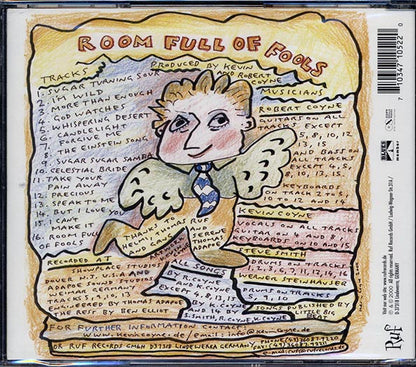 ROOM FULL OF FOOLS
TRACKS
PRODUCED BY KEVIN
AND ROBERT
COYNE
1. SUGAR TURNING SOUR
2. I'M WILD
3. MORE THAN ENOUGH
4. GOD WATCHES
5. WHISPERING DESERT
6. CANDLELIGHT
7. FORGIVE ME
8. THE EINSTEIN SONG
9. SUGAR SUGAR SAMBA
10. CELESTIAL BRIDE
11. TAKE YOUR
PAIN AWAY
12. PRECIOUS
13. SPEAK TO ME
14. BUT I LOVE YOU
15. I CAN'T
TAKE IT
16. ROOM FULL
OF FOOLS
MUSICIANS
ROBERT COYNE
GUITARS ON ALL
TRACKS EXCEPT
5, 8, 10, 12
13, 15
AND BASS ON
ALL TRACKS
EXCEPT 4, 5,
8, 10, 12, 13
KEYBOARDS
ON TRACK 2, 5,
10, 12 AND 14
KEVIN COYNE
VOCALS ON ALL TRACKS
GUITAR ON 4, 8
KEYBOARD ON 10 AND 15
STEVE SMITH
DRUMS ON TRACKS
1, 2, 3, 6, 7, 11, 12, 14, 16
WERNER STEINHAUSER
DRUMS ON TRACKS
THANKS TO
HELMI, THOMAS RUF
AND
IRENE
THOMAS
RECORDED AT
SHOWPLACE STUDIOS
DOVER N.J. USA AND
ADAPOE SOUND STUDIOS
BY THOMAS ADAPOE
THE REST BY BEN ELLIOT
ALL SONGS
BY R. COYNE
AND K. COYNE
EXCEPT
AND 16 BY
S. SMITH, R. COYNE, K. COYNE
SONGS PUBLISHED BY
LITTLE BIG
BEAT
FOR FURTHER INFORMATION CONTACT
www.kevincoyne.de
OR RUF RECORDS GMBH D37318 LINDEWERRA GERMANY
7 10347 10522 0
Ruf